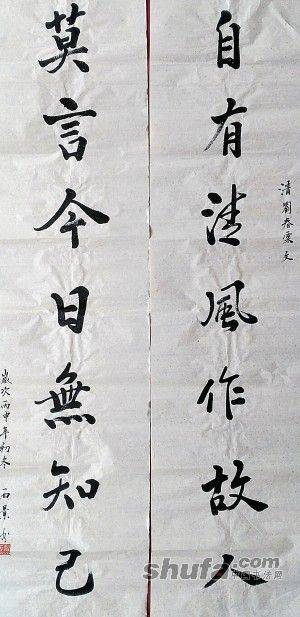 自有清風作故人
清劉春霖文
莫言今日無知己
歲次丙申年初冬 石景
shufa.com
中国书法网